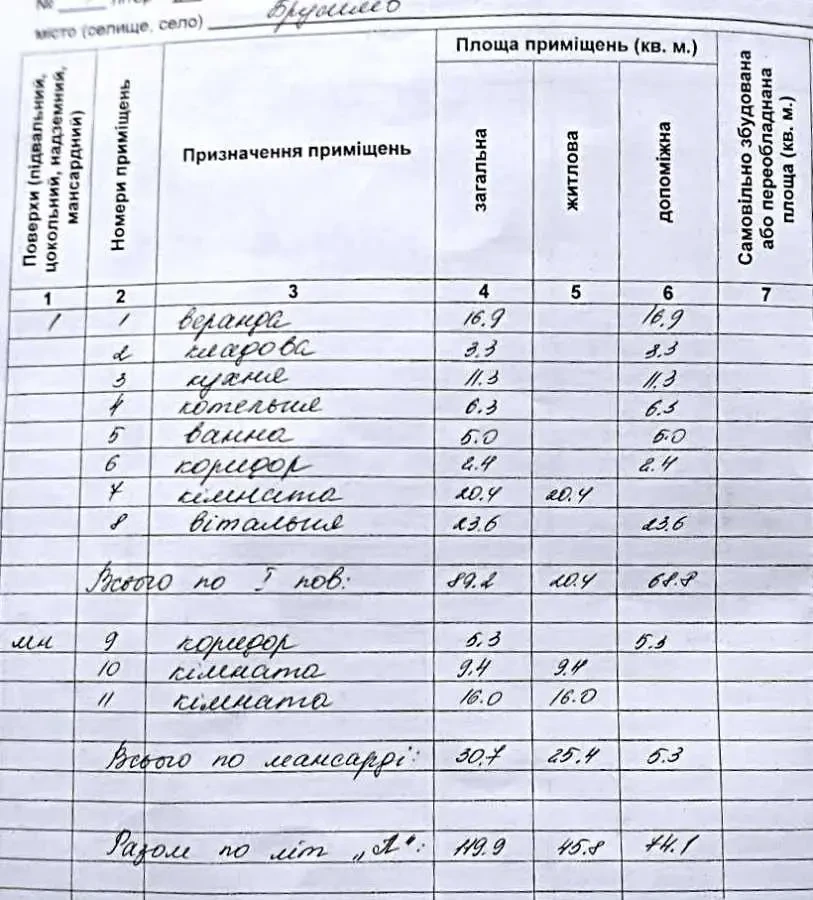 №
місто (селище, село) Брусилів
Поверхи (підвальний, цокольний, надземний, мансардний)
Номери приміщень
Призначення приміщень
Площа приміщень (кв. м.)
загальна
житлова
допоміжна
Самовільно збудована або переобладнана площа (кв. м.)
1 2 3 4 5 6 7
1 1 веранда 16.9 16.9
2 кладова 3.3 3.3
3 кухня 11.3 11.3
4 котельня 6.3 6.3
5 ванна 5.0 5.0
6 коридор 2.4 2.4
7 кімната 20.4 20.4
8 вітальня 23.6 23.6
Всього по I пов: 89.2 20.4 68.8
мн 9 коридор 5.3 5.3
10 кімната 9.4 9.4
11 кімната 16.0 16.0
Всього по мансарді: 30.7 25.4 5.3
Разом по літ „А": 119.9 45.8 74.1